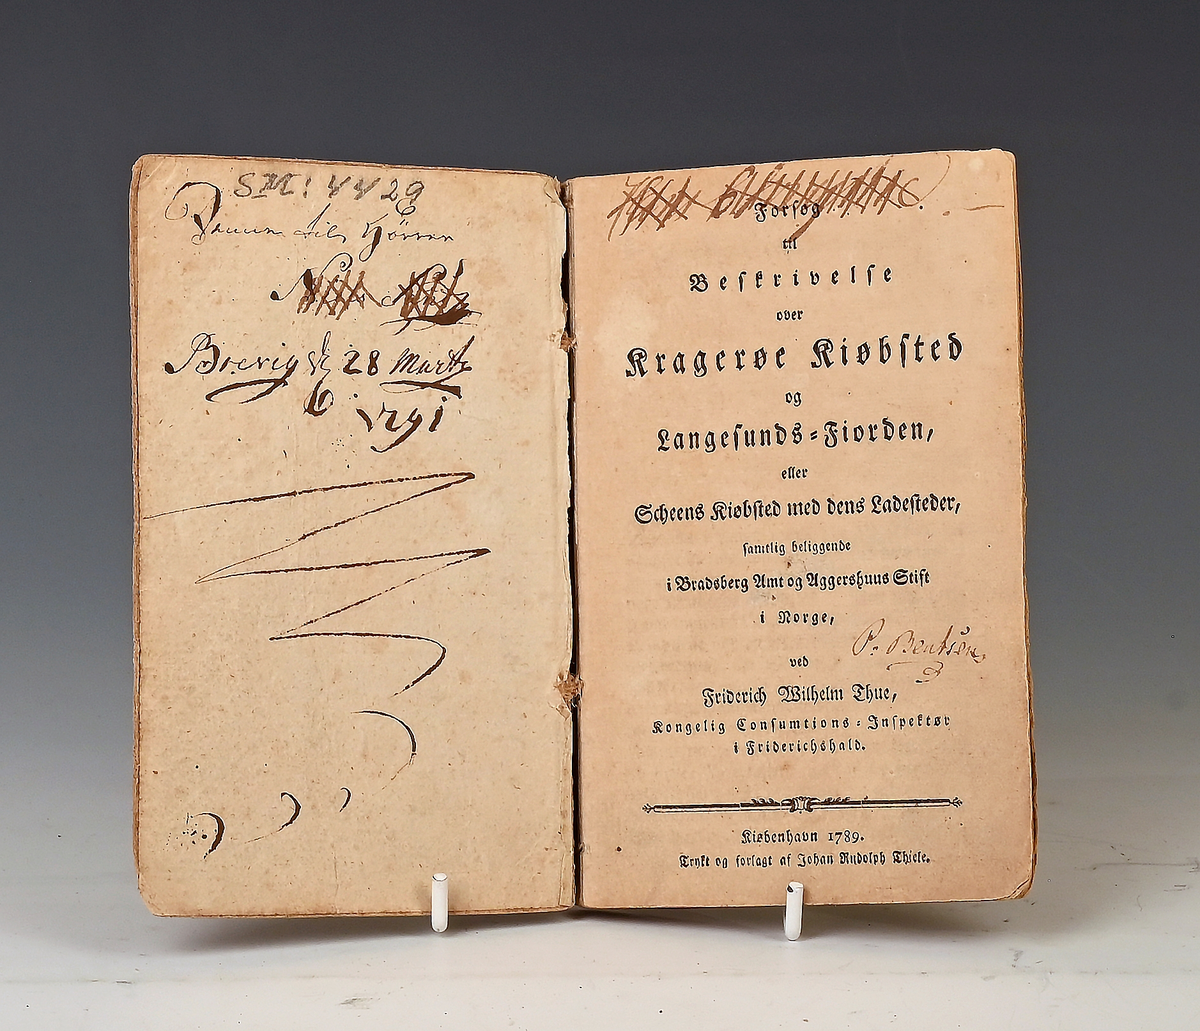 SM: 4429
Denne til Hörer
Brevig d 28 Marti
1791
Forsøg
til
Beskrivelse
over
Kragerøe Kiøbsted
og
Langesunds-Fiorden,
eller
Scheens Kiøbsted med dens Ladesteder,
samtlig beliggende
i Bradsberg Amt og Aggershuus Stift
i Norge,
P. Bentsen
ved
Friderich Wilhelm Thue,
Kongelig Consumtions-Inspektør
i Friderichshald.
Kiøbenhavn 1789.
Trykt og forlagt af Johan Rudolph Thiele.